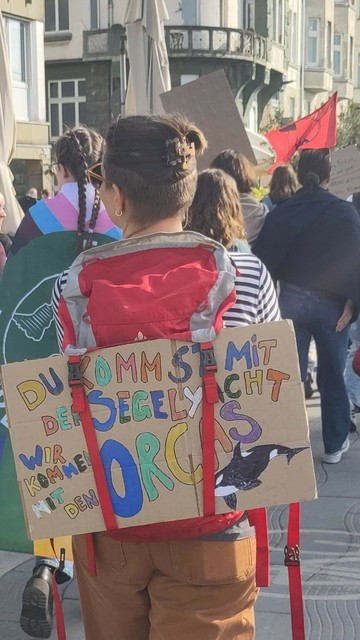 DU KOMMST MIT
DER SEGELYACHT
WIR
KOMMEN
MIT DEN
ORCAS